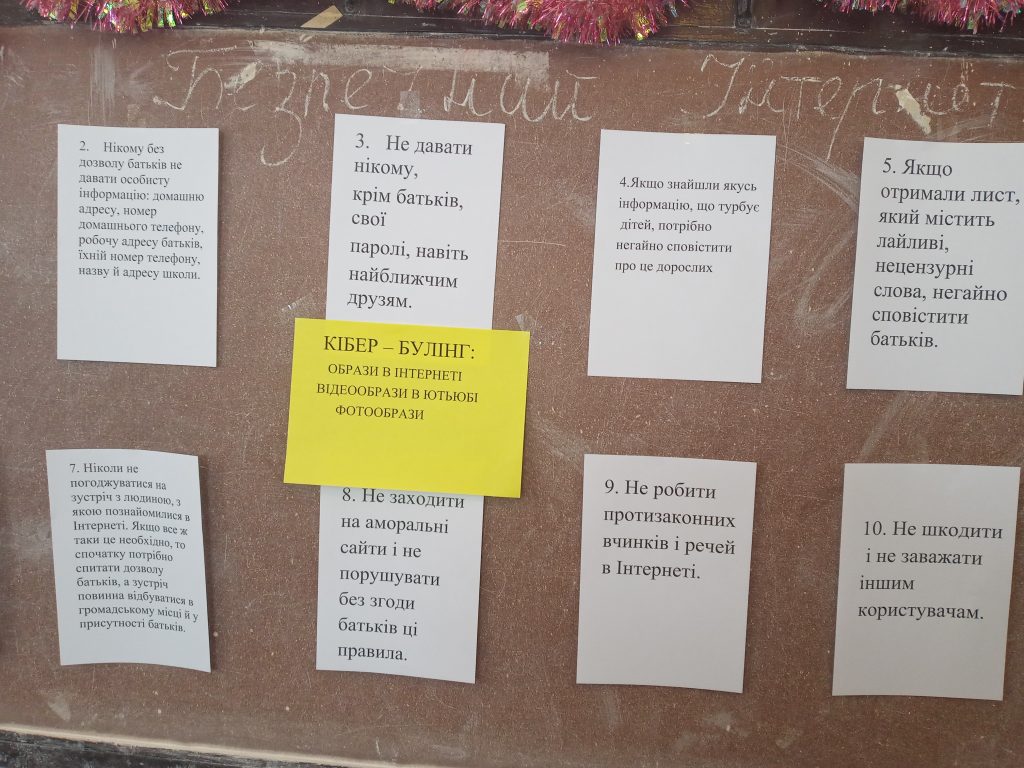 Безпечний Інтернет
2. Нікому без
дозволу батьків не
давати особисту
інформацію: домашню
адресу, номер
домашнього телефону,
робочу адресу батьків,
їхній номер телефону,
назву й адресу школи.
3. Не давати
нікому,
крім батьків,
свої
паролі, навіть
найближчим
друзям.
4.Якщо знайшли якусь
інформацію, що турбує
дітей, потрібно
негайно сповістити
про це дорослих
5. Якщо
отримали лист,
який містить
лайливі,
нецензурні
слова, негайно
сповістити
батьків.
КІБЕР – БУЛІНГ:
ОБРАЗИ В ІНТЕРНЕТІ
ВІДЕООБРАЗИ В ЮТЬЮБІ
ФОТООБРАЗИ
7. Ніколи не
погоджуватися на
зустріч з людиною, з
якою познайомилися в
Інтернеті. Якщо все ж
таки це необхідно, то
спочатку потрібно
спитати дозволу
батьків, а зустріч
повинна відбуватися в
громадському місці й у
присутності батьків.
8. Не заходити
на аморальні
сайти і не
порушувати
без згоди
батьків ці
правила.
9. Не робити
протизаконних
вчинків і речей
в Інтернеті.
10. Не шкодити
і не заважати
іншим
користувачам.